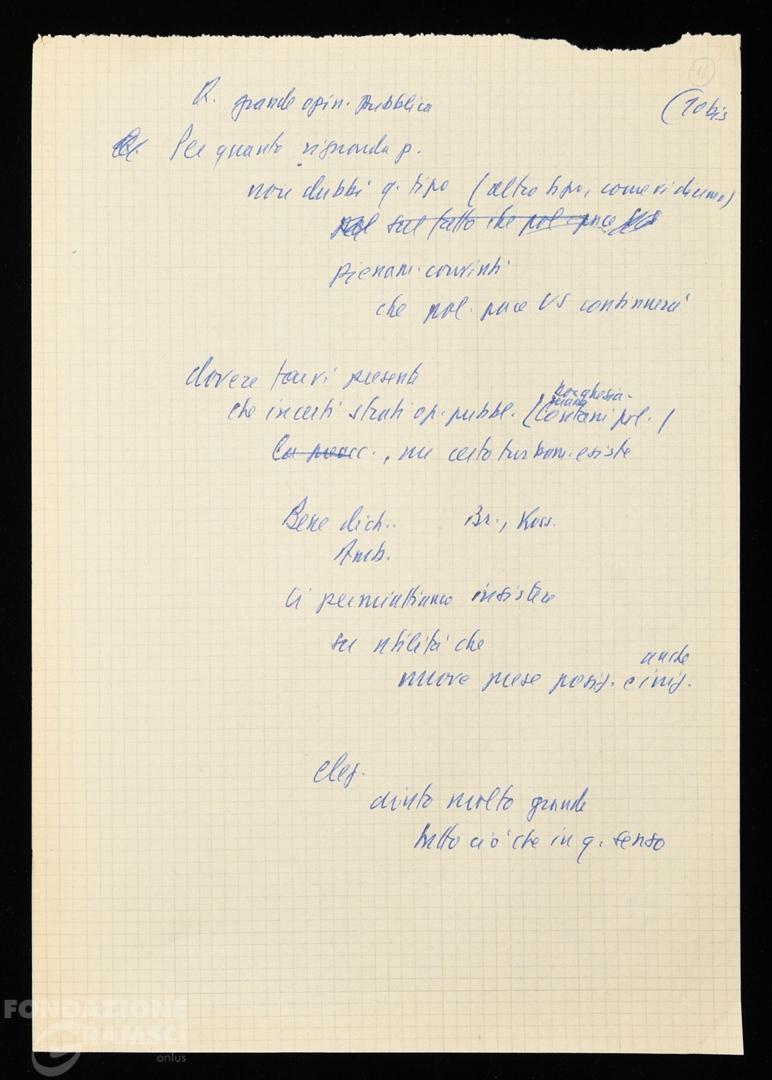 R. grande opin. pubblica (10 bis
Per quanto riguarda p.
non dubbi q. tipo (altro tipo, come vi diremo)
sul fatto che pol. pace
pienam. convinti
che pol. pace US continuerà
dovere farvi presente
che in certi strati op. pubbl. (borghesia - lontani pol.)
, un certo turbam. esiste
Bene dich. Br., Koss.
Amb.
ci permettiamo insistere
su utilità che
nuove prese posiz. e iniz. anche
elez.
aiuto molto grande
tutto ciò che in q. senso
FONDAZIONE
GRAMSCI
onlus